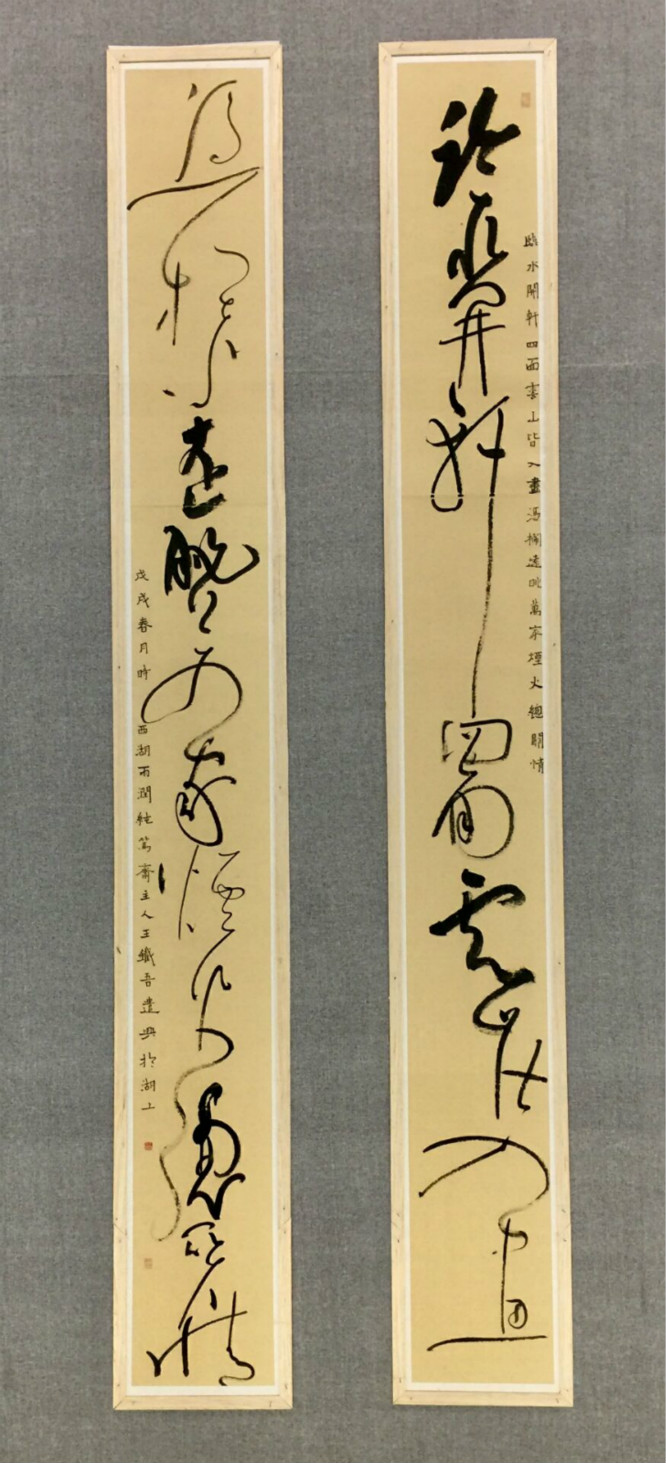 臨水開軒四面雲山皆入畫馮欄遠眺萬家煙火總關情
臨水開軒四面雲山皆入畫
馮欄遠眺萬家煙火總關情
戊戌春月時西湖雨潤純篤齋主人王鐵吾遣興於湖上